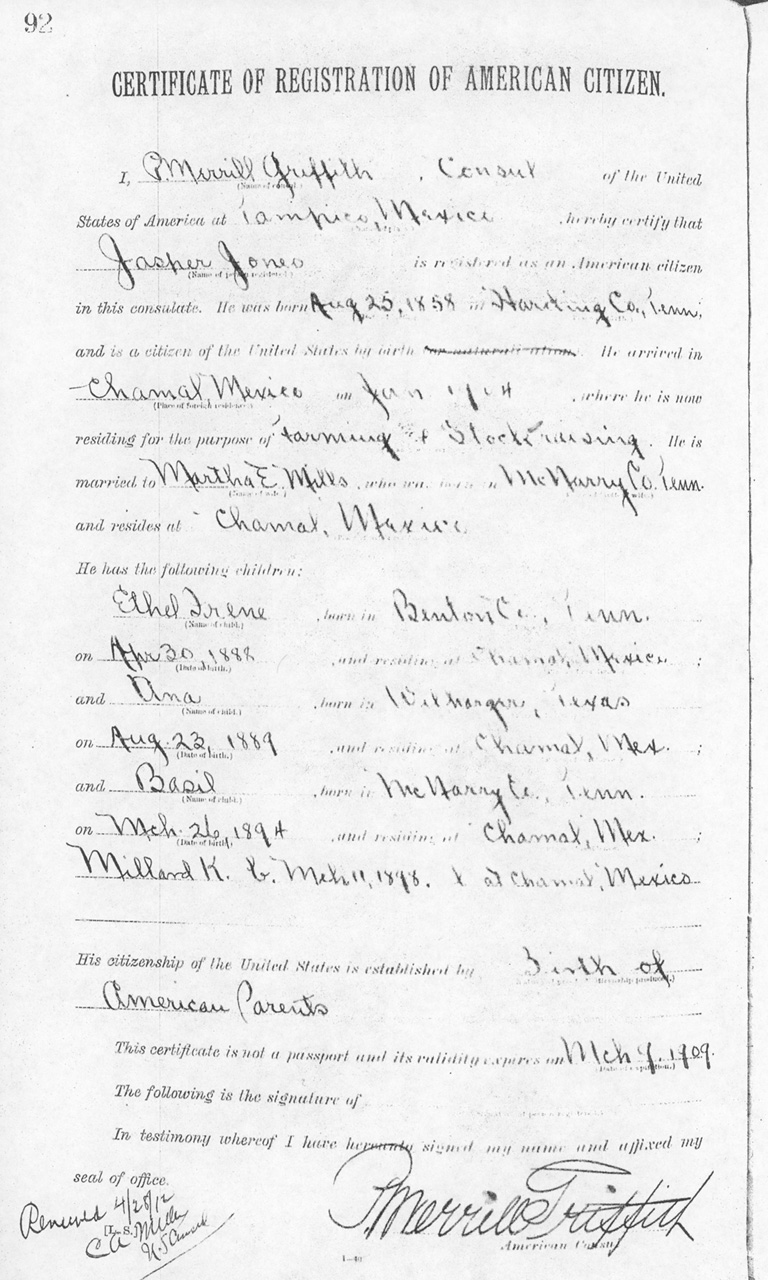 92
CERTIFICATE OF REGISTRATION OF AMERICAN CITIZEN.
I, P Merrill Griffith, Consul of the United
(Name of consul.)
States of America at Tampico, Mexico, hereby certify that
Jasper Jones is registered as an American citizen
(Name of person registered.)
in this consulate. He was born Aug 25, 1858 in Harding Co., Tenn,
and is a citizen of the United States by birth or naturalization. He arrived in
Chamal, Mexico on Jan 1904, where he is now
(Place of foreign residence.)
residing for the purpose of Farming & Stock raising. He is
married to Martha E Mills, who was born in McNarry Co. Tenn.
(Name of wife.)
and resides at Chamal, Mexico
He has the following children:
Ethel Irene, born in Benton Co., Tenn.
(Name of child.)
on Apr 30 1888, and residing at Chamal, Mexico;
(Date of birth.)
and Ana, born in Wilbarger, Texas
(Name of child.)
on Aug. 23, 1889, and residing at Chamal, Mex.;
(Date of birth.)
and Basil, born in McNarry Co., Tenn.
(Name of child.)
on Mch. 26, 1894, and residing at Chamal, Mex.;
(Date of birth.)
Millard K. b. Mch 11, 1898. & at Chamal, Mexico
His citizenship of the United States is established by Birth of
American Parents
This certificate is not a passport and its validity expires on Mch 9. 1909.
(Date of expiration.)
The following is the signature of
In testimony whereof I have hereunto signed my name and affixed my
seal of office.
Renewed 4/28/12
[L. S.]
C A Miller
U.S. Consul
P Merrill Griffith
American Consul